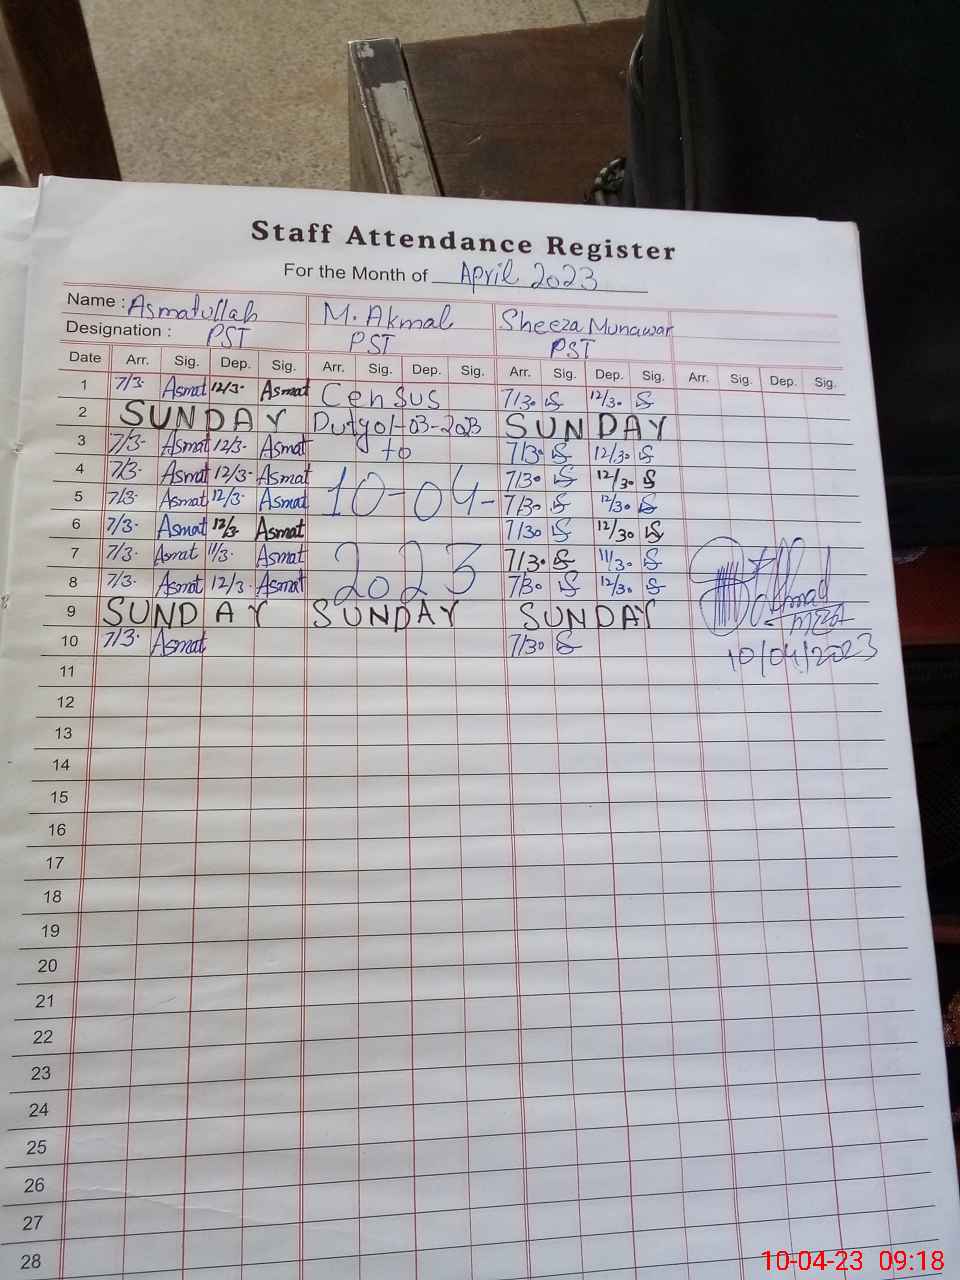 Staff Attendance Register
For the Month of April 2023
Name : Asmatullah M. Akmal Sheeza Munawar
Designation : PST PST PST
Date Arr. Sig. Dep. Sig. Arr. Sig. Dep. Sig. Arr. Sig. Dep. Sig. Arr. Sig. Dep. Sig.
1 7/3. Asmat 12/3. Asmat Census 7/30 12/30
2 SUNDAY Duty 01-03-2023 SUNDAY
3 7/3. Asmat 12/3. Asmat to 7/30 12/30
4 7/3. Asmat 12/3. Asmat 10-04- 7/30 12/30
5 7/3. Asmat 12/3. Asmat 7/30 12/30
6 7/3. Asmat 12/3. Asmat 7/30 12/30
7 7/3. Asmat 11/3. Asmat 2023 7/30 11/30
8 7/3. Asmat 12/3. Asmat 7/30 12/30
9 SUNDAY SUNDAY SUNDAY
10 7/3. Asmat 7/30
10/04/2023
11
12
13
14
15
16
17
18
19
20
21
22
23
24
25
26
27
28
10-04-23 09:18